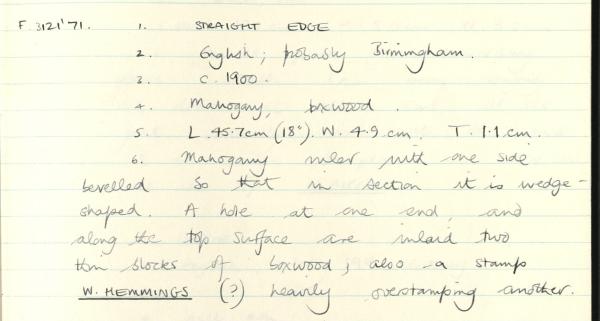 F. 3121'71. 1. STRAIGHT EDGE
2. English; probably Birmingham.
3. c. 1900.
4. Mahogany, boxwood.
5. L. 45.7cm (18"). W. 4.9 cm. T. 1.1 cm.
6. Mahogany ruler with one side
bevelled so that in section it is wedge-
shaped. A hole at one end, and
along the top surface are inlaid two
thin blocks of boxwood; also a stamp
W. HEMMINGS (?) heavily overstamping another.